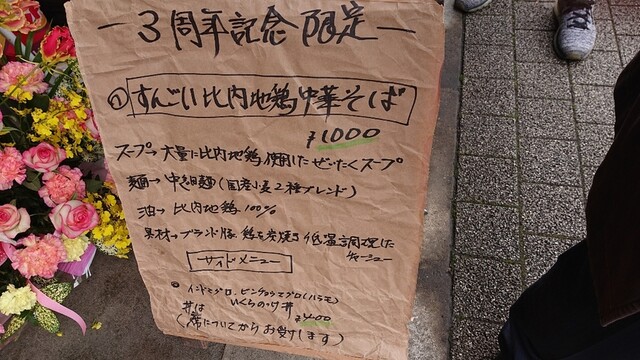 ー3周年記念 限定ー
① すんごい比内地鶏中華そば
¥1000
スープ→大量に比内地鶏使用したぜいたくスープ
麺→中細麺(国産小麦2種ブレンド)
油→比内地鶏100%
具材→ブランド豚、鶏を炭焼き低温調理した
チャーシュー
サイドメニュー
インドマグロ、ビンチョウマグロ(ハラモ)
いくらのっけ丼
¥400
丼は
(席についてからお受けします)